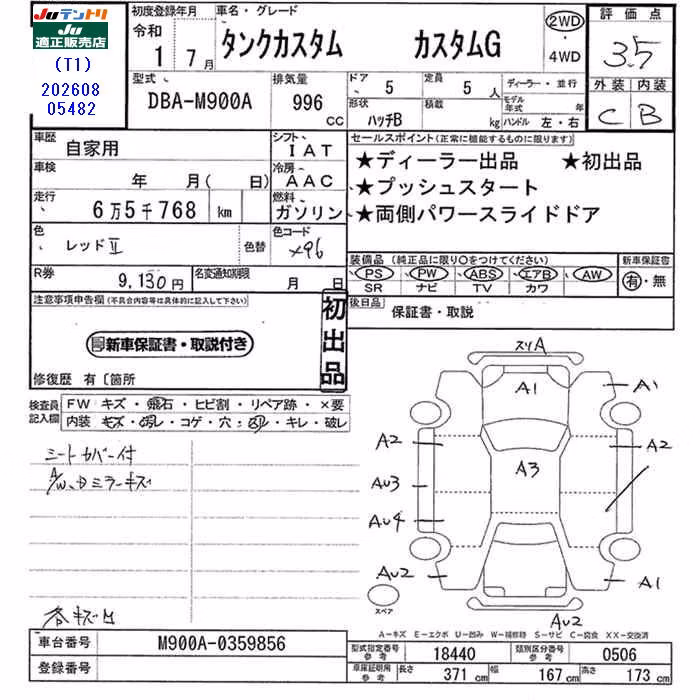 Juテントリ
Ju適正販売店
(T1)
202608
05482
初度登録年月
令和
1年 7月
車名・グレード
タンクカスタム カスタムG
2WD
・
4WD
評価点
3.5
外装 内装
C B
型式
DBA-M900A
排気量
996 CC
ドア
5
定員
5人
形状
ハッチB
積載
kg
ディーラー・並行
モデル年式 年
ハンドル 左・右
車歴
自家用
シフト
IAT
車検
年 月( 日)
冷房
AAC
走行
6万5千768 km
燃料
ガソリン
色
レッドⅡ
色替
色コード
X96
R券
9,130円
名変通知期限
月 日
セールスポイント(正常に機能するものに限ります)
★ディーラー出品 ★初出品
★プッシュスタート
★両側パワースライドドア
装備品(純正品に限り○をつけてください)
PS PW ABS エアB AW
SR ナビ TV カワ
新車保証書
有・無
後日品
保証書・取説
注意事項申告欄(不具合内容等は具体的に記入して下さい)
新車保証書・取説付き
初出品
修復歴 有〔箇所
検査員記入欄
FW キズ・飛石・ヒビ割・リペア跡・×要
内装 キズ・汚レ・コゲ・穴・凹・キレ・破レ
シートカバー付
A/W、Dミラーキズ
各キズ凹
スリA
A1
A1
A2
A2
A3
AU3
AU4
AU2
A1
スペア
AU2
A-キズ E-エクボ U-凹み W-補修跡 S-サビ C-腐食 XX-交換済
車台番号
M900A-0359856
登録番号
型式指定番号 参考
18440
類別区分番号 参考
0506
車庫証明用 参考
長さ 371 cm 幅 167 cm 高さ 173 cm